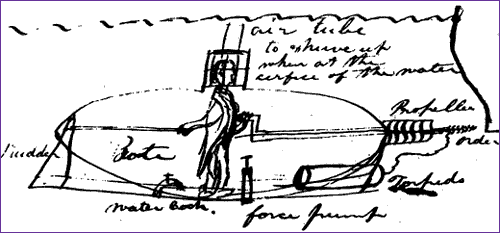 air tube
to shuve up
when at the
cerfice of the water
Propeller
Rudder
Bote
Torpedo
water cock.
force pump